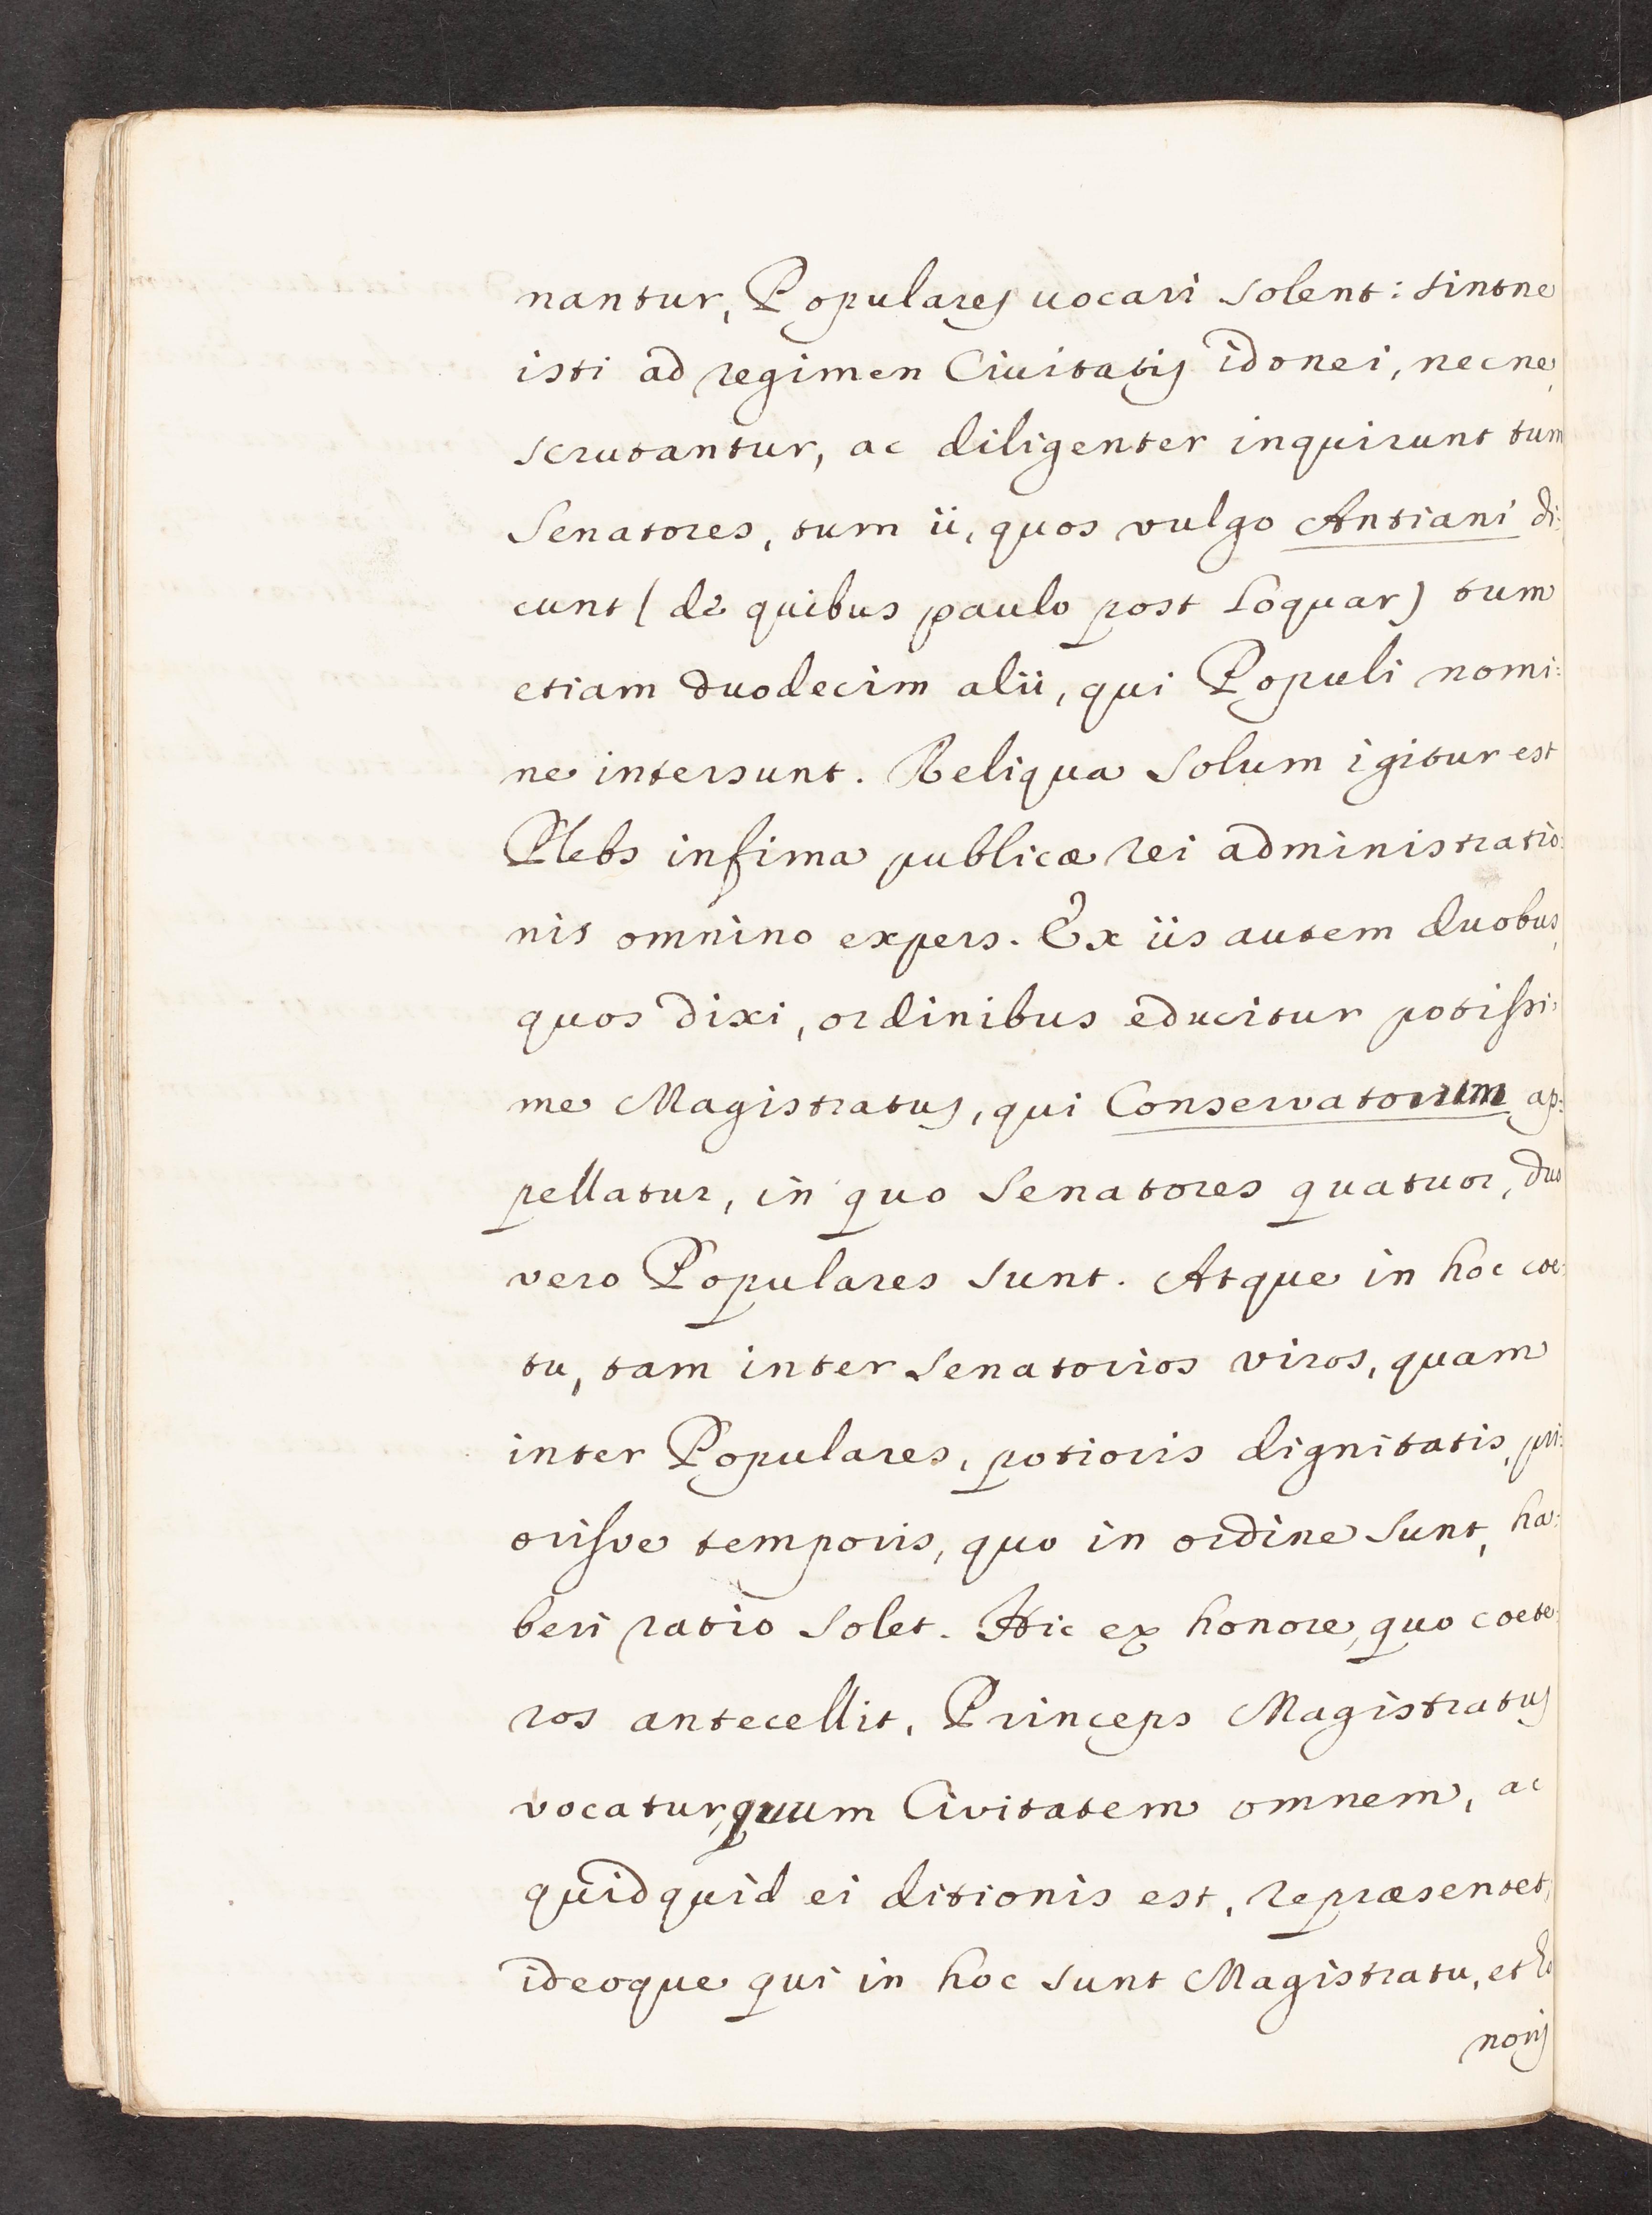 nantur, Populares uocari solent: sintne
isti ad regimen Ciuitatis idonei, necne,
scrutantur, ac diligenter inquirunt tum
Senatores, tum ii, quos vulgo Antiani di:
cunt (de quibus paulo post loquar) tum
etiam duodecim alii, qui Populi nomi:
ne intersunt. Reliqua solum igitur est
Plebs infima publicæ rei administratio:
nis omnino expers. Ex iis autem duobus,
quos dixi, ordinibus educitur potissi:
me Magistratus, qui Conservatorum ap:
pellatur, in quo Senatores quatuor, duo
vero Populares sunt. Atque in hoc coe:
tu, tam inter Senatorios viros, quam
inter Populares, potioris dignitatis, pri:
orisve temporis, quo in ordine sunt, ha:
beri ratio solet. Hic ex honore, quo coete:
ros antecellit, Princeps Magistratus
vocatur, quum Civitatem omnem, ac
quidquid ei ditionis est, repræsentet,
ideoque qui in hoc sunt Magistratu, et ho
noris